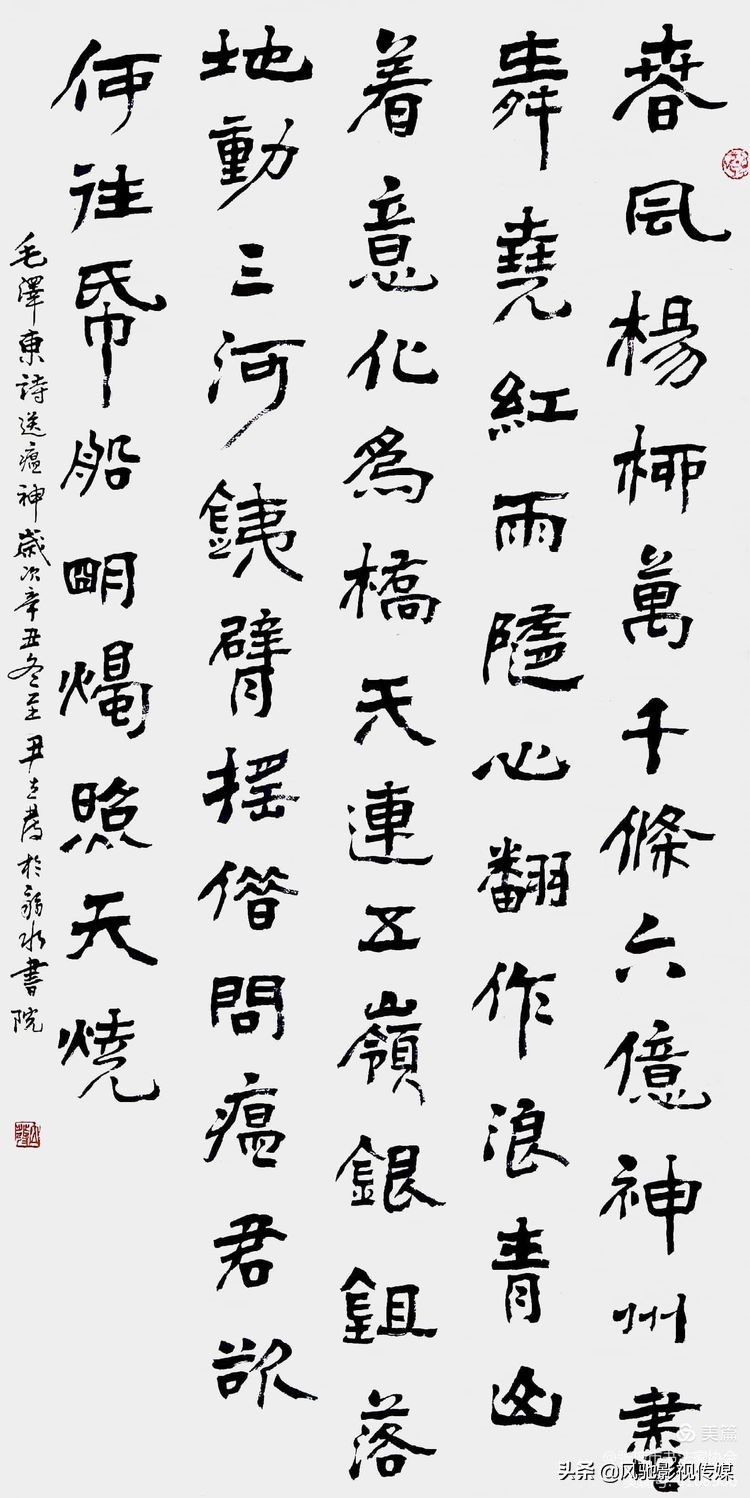 春風楊柳萬千條六億神州盡
舜堯紅雨隨心翻作浪青山
着意化為橋天連五嶺銀鋤落
地動三河鐵臂搖借問瘟君欲
何往紙船明燭照天燒
毛澤東詩送瘟神歲次辛丑冬至尹立 於 水書院
美篇
头条 @风驰影视传媒